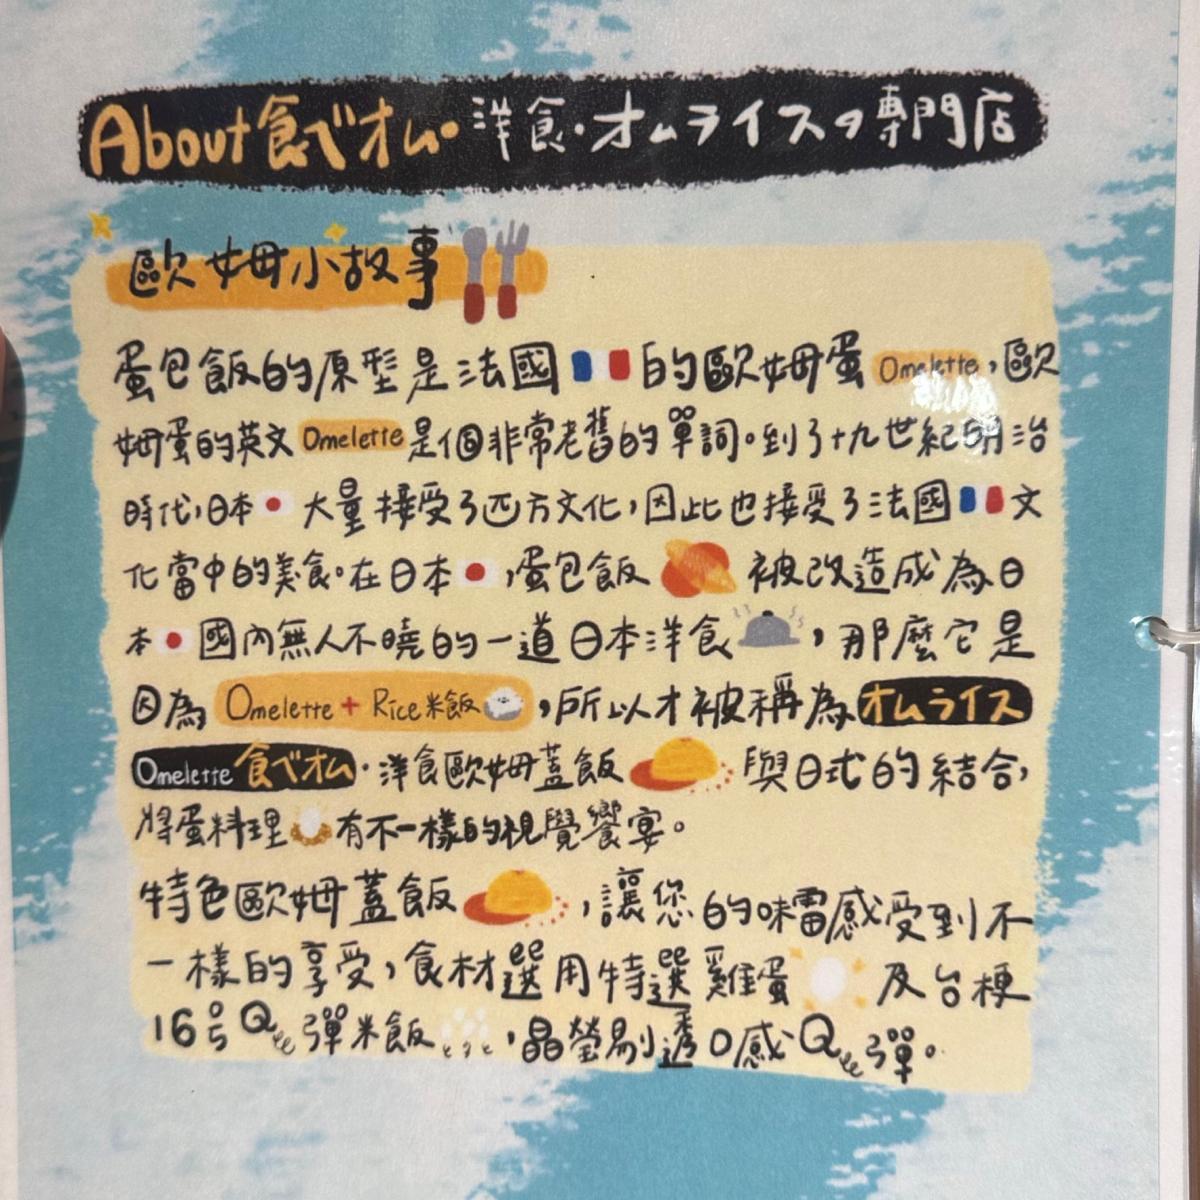 About 食べオム・洋食・オムライスの専門店
歐姆小故事
蛋包飯的原型是法國🇫🇷的歐姆蛋 Omelette，歐
姆蛋的英文 Omelette 是個非常老舊的單詞。到了十九世紀明治
時代，日本🇯🇵大量接受了西方文化，因此也接受了法國🇫🇷文
化當中的美食。在日本🇯🇵，蛋包飯被改造成為日
本🇯🇵國內無人不曉的一道日本洋食，那麼它是
因為 Omelette + Rice米飯，所以才被稱為オムライス
Omelette 食べオム・洋食歐姆蓋飯與日式的結合，
將蛋料理有不一樣的視覺饗宴。
特色歐姆蓋飯，讓您的味蕾感受到不
一樣的享受，食材選用特選雞蛋及台梗
16号Q彈米飯，晶瑩剔透口感Q彈。